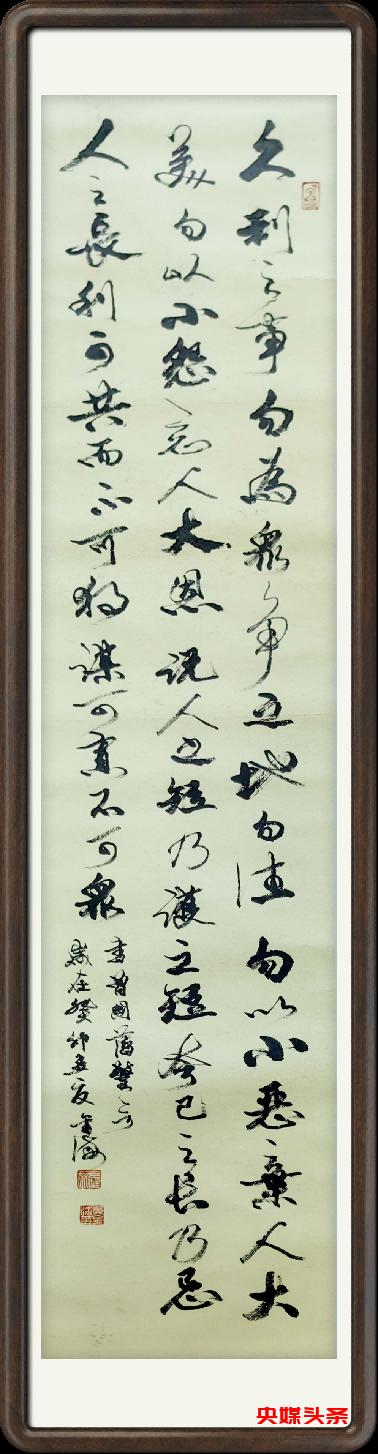 久利之事勿為眾爭之地勿往勿以小惡棄人大
美勿以小怨忘人大恩説人之短乃護之短夸己之長乃忌
人之長利可共而不可獨謀可寡不可眾
書曾國藩警言
歲在癸卯孟夏
央媒头条